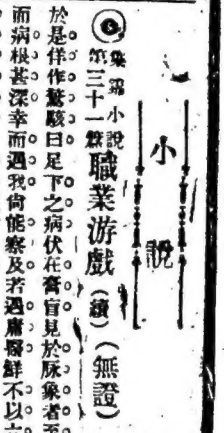 小說
集錦小說
第三十一篇
職業游戲（續）（無證）
於是佯作驚駭曰足下之病伏在膏肓見於脉象者至
而病根甚深幸而遇我尚能察及若遇庸醫鮮不以